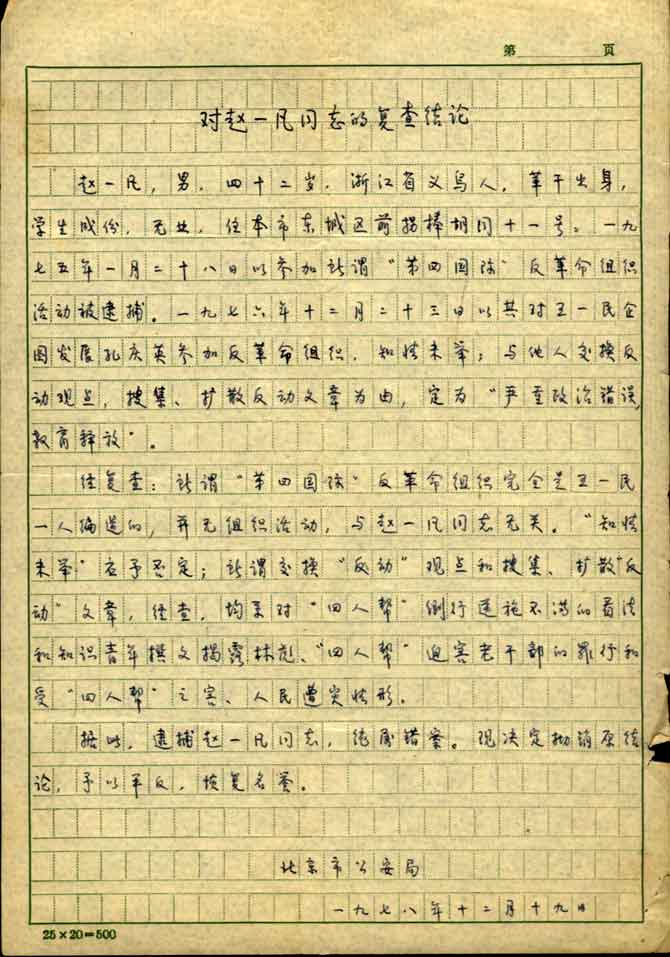 第 页
对赵一凡同志的复查结论
赵一凡，男，四十二岁，浙江省义乌人，革干出身，
学生成份，无业，住本市东城区前拐棒胡同十一号。一九
七五年一月二十八日以参加所谓“第四国际”反革命组织
活动被逮捕。一九七六年十二月二十三日以其对王一民企
图发展孔庆英参加反革命组织，知情未举；与他人交换反
动观点，搜集、扩散反动文章为由，定为“严重政治错误，
教育释放”。
经复查：所谓“第四国际”反革命组织完全是王一民
一人编造的，并无组织活动，与赵一凡同志无关。“知情
未举”应予否定；所谓交换“反动”观点和搜集、扩散“反
动”文章，经查，均系对“四人帮”倒行逆施不满的看法
和知识青年撰文揭露林彪、“四人帮”迫害老干部的罪行和
受“四人帮”之害、人民遭灾情形。
据此，逮捕赵一凡同志，纯属错案。现决定撤销原结
论，予以平反，恢复名誉。
北京市公安局
一九七八年十二月十九日
25×20=500